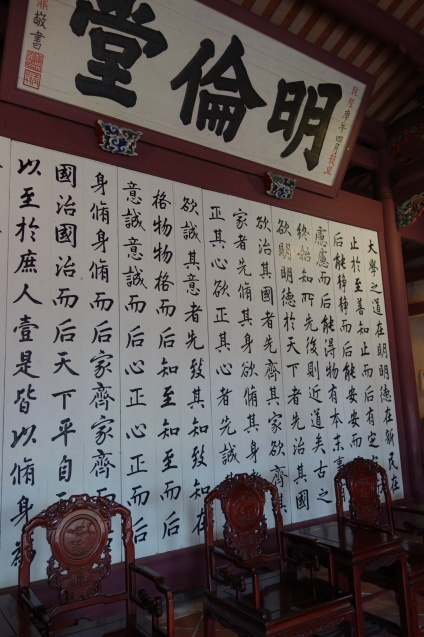 明倫堂
敬書
大學之道在明明德在新民在
止於至善知止而后有定
后能靜靜而后能安安而
慮慮而后能得物有本末事
終始知所先後則近道矣古之
欲明明德於天下者先治其國
欲治其國者先齊其家欲齊其
家者先脩其身欲脩其身
正其心欲正其心者先誠
欲誠其意者先致其知致知在
格物物格而后知至知至而后
意誠意誠而后心正心正而后
身脩身脩而后家齊家齊而
國治國治而后天下平自
以至於庶人壹是皆以脩身為